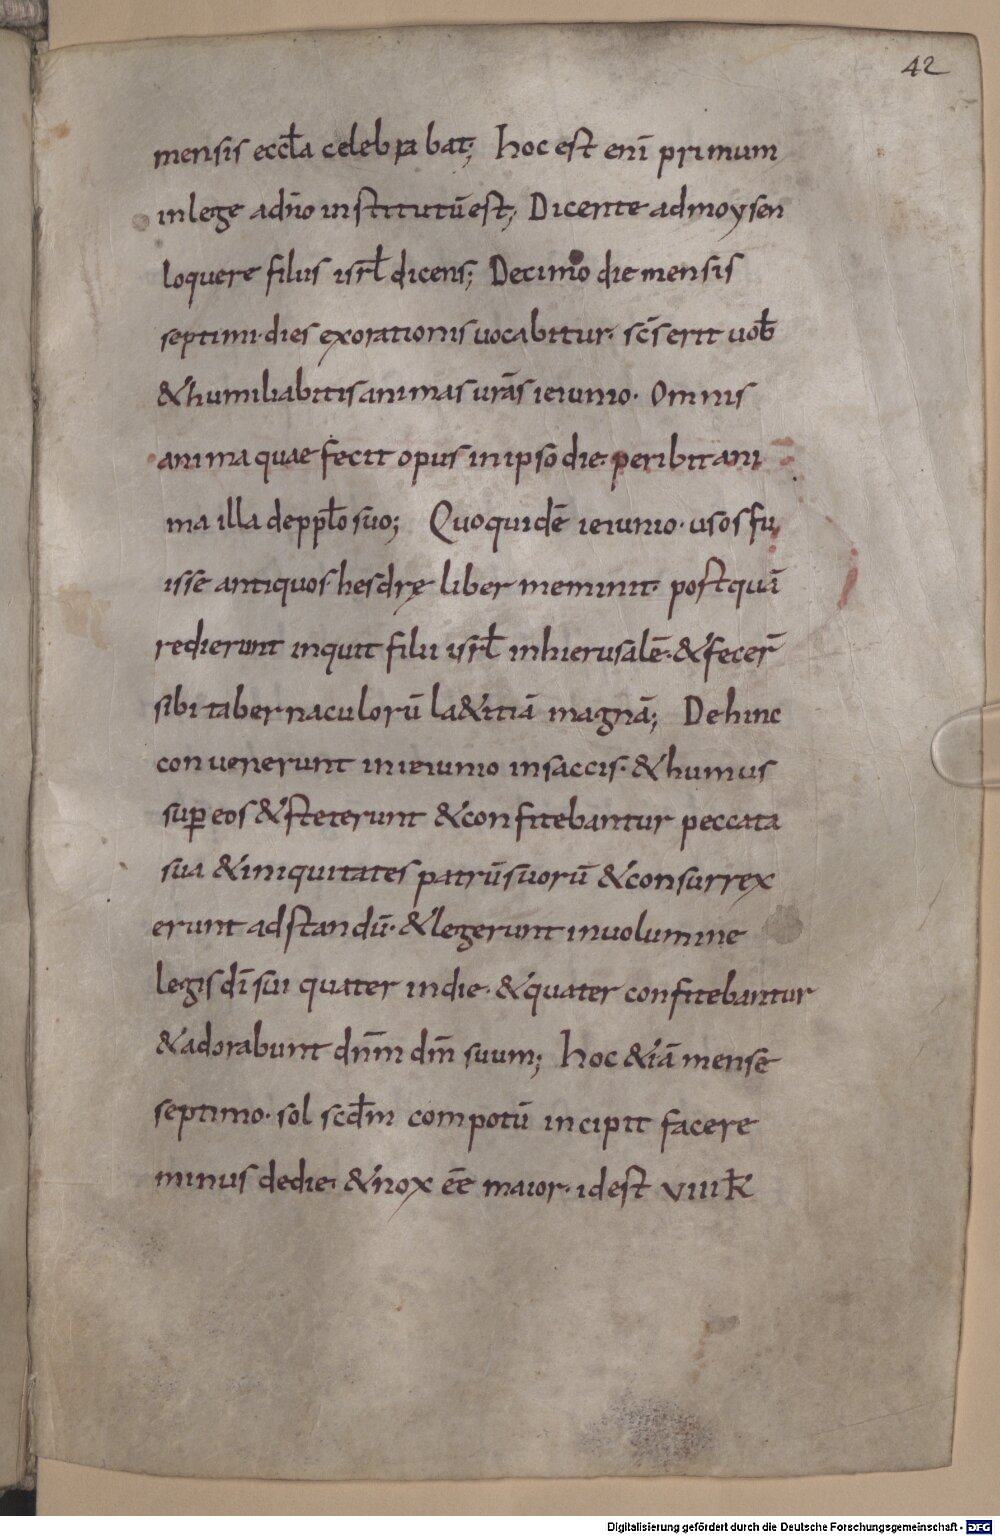 42
mensis eccla̅ celebrabat; hoc est eni̅ primum
inlege adn̅o institutu̅est; Dicente admoysen
loquere filiis isrl̅ dicens; Decimo diemensis
septimi· dies exorationis uocabitur· sc̅s erit uob̅
&humiliabitisanimas ura̅s ieiunio· Omnis
anima quae fecit opus inipso die· peribit ani
ma illa depplo̅ suo; Quoquide̅ ieiunio· usos fu
isse antiquos· hesdrę liber meminit· postqua̅
redierunt inquit filii isrl̅ inhierusale̅· &fecer̅
sibi tabernaculoru̅ la&itia̅ magna̅; Dehinc
conuenerunt inieiunio insaccis· &humus
suꝑ eos &steterunt &confitebantur peccata
sua &iniquitates patru̅suoru̅ &consurrex
erunt adstandu̅· &legerunt inuolumine
legis di̅ sui quater indie· &quater confitebantur
&adorabunt dnm̅ dm̅ suum; hoc &ia̅ mense
septimo· sol scdm̅ compotu̅ incipit facere
minus dedie· &nox ee̅ maior· idest VIIIk̅
Digitalisierung gefördert durch die Deutsche Forschungsgemeinschaft - DFG